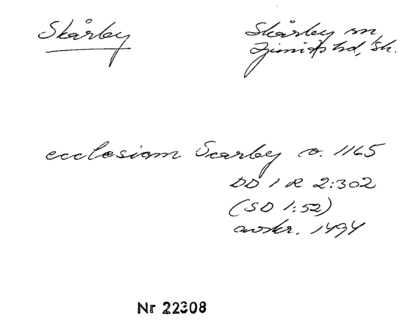 Skårby
Skårby sn
Ljunits hd, Sk.
ecclesiam Scarby o. 1165
DD 1 R 2:302
(SD 1:52)
avskr. 1494
Nr 22308